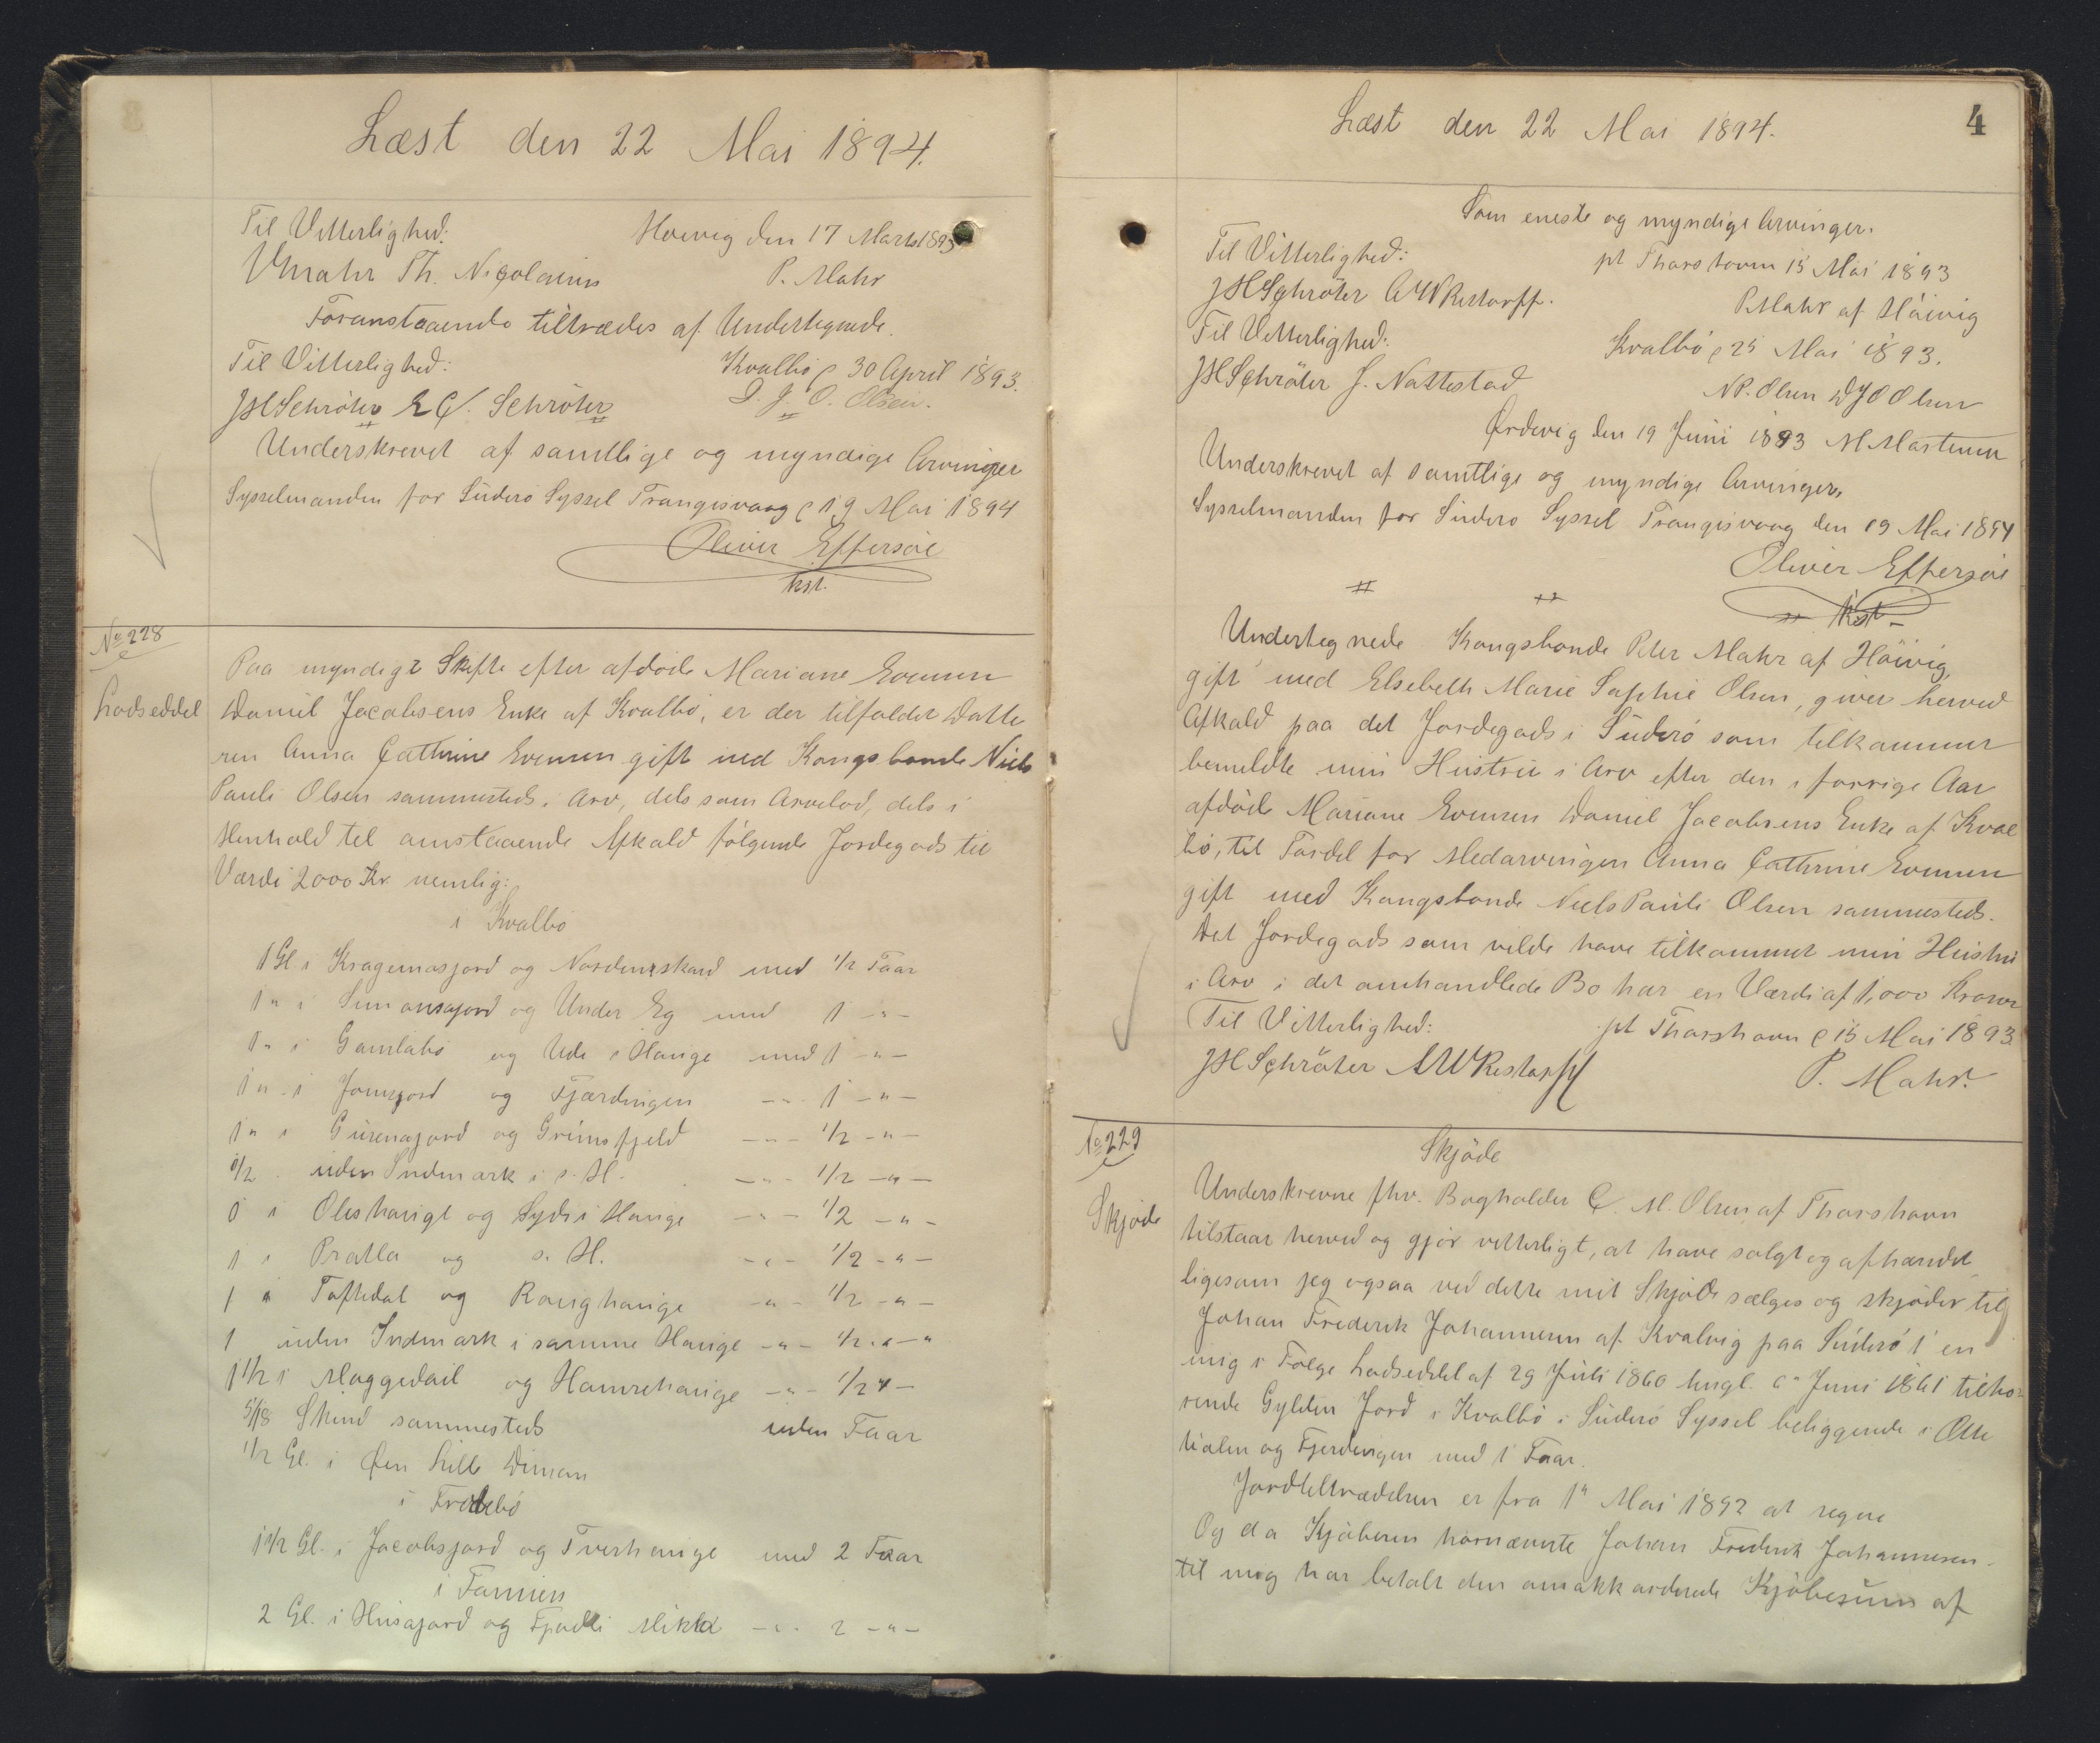 Læst den 22 Mai 1894.
Til Vitterlighed: Hoivig den 17 Marts 1893
VMahr Th. Nicolaisen P. Mahr
Foranstaaende tiltrædes af Undertegnede.
Til Vitterlighed: Kvalbø d 30 April 1893.
JHSchröter E C. Schröter D. J. O. Olsen.
Underskrevet af samtlige og myndige Arvinger
Sysselmanden for Suderø Syssel Trangisvaag d 19 Mai 1894
Oliver Effersøe
kst.
No 228
Lodseddel
Paa myndigt Skifte efter afdøde Mariane Evensen
Daniel Jacobsens Enke af Kvalbø, er der tilfaldet Datte
ren Anna Cathrine Evensen gift med Kongsbonde Niels
Pauli Olsen sammesteds i Arv, dels som Arvelod, dels i
Henhold til omstaaende Afkald følgende Jordegods til
Værdi 2000 Kr. nemlig:
i Kvalbø
1 Gl i Kragemosjord og Nordenskard med 1/2 Faar
1 " i Simonsajord og Under Eg med 1 -"-
1 " i Gamlabø og Ude i Hauge med 1 -"-
1 " i Jonsjord og Fjærdingen -"- 1 -"-
1 " i Gurenajord og Grimsfjeld -"- 1/2 -"-
1/2 uden Indmark i s. H. -"- 1/2 -"-
0 i Oleshauge og Sydi i Hauge -"- 1/2 -"-
1 i Pratla og s. H. -"- 1/2 -"-
1 i Toftedal og Ranghauge -"- 1/2 -"-
1 uden Indmark i samme Hauge -"- 1/2 -"-
1 1/2 i Moggedail og Hamrehauge -"- 1/2 "-
5/18 Skind sammesteds uden Faar
1/2 Gl. i Øen Lille Diman
i Frodebø
1 1/2 Gl. i Jacobsjord og Tverhauge med 2 Faar
i Famien
2 Gl. i Husajord og Fjadli Mikla -"- 2 -"-
Læst den 22 Mai 1894.
4
Som eneste og myndige Arvinger.
Til Vitterlighed: pt Thorshavn 15 Mai 1893
JHSchröter AWRestorff. P.Mahr af Höivig
Til Vitterlighed: Kvalbø d 25 Mai 1893.
JHSchröter J. Nattestad NP. Olsen DJO Olsen
Ørdevig den 19 Juni 1893 M Mortensen
Underskrevet af samtlige og myndige Arvinger.
Sysselmanden for Suderø Syssel Trangisvaag den 19 Mai 1894
Oliver Effersøe
kst.
Undertegnede Kongsbonde Peter Mahr af Höivig,
gift med Elsebeth Marie Sophie Olsen, giver herved
Afkald paa det Jordegods i Suderø som tilkommer
bemeldte min Hustru i Arv efter den i forrige Aar
afdøde Mariane Evensen Daniel Jacobsens Enke af Kval
bø, til Fordel for Medarvingen Anna Cathrine Evensen
gift med Kongsbonde Niels Pauli Olsen sammesteds.
Det Jordegods som vilde have tilkommet min Hustru
i Arv i det omhandlede Bo har en Værdi af 1,000 Kroner
Til Vitterlighed: pt Thorshavn d 15 Mai 1893.
JHSchröter AWRestorff P. Mahr.
No 229
Skjøde
Skjøde
Underskrevne fhv. Bogholder C. M. Olsen af Thorshavn
tilstaar herved og gjør vitterligt, at have solgt og afhændet
ligesom jeg ogsaa ved dette mit Skjøde sælger og skjøder til
Johan Frederik Johannesen af Kvalvig paa Suderø 1 en
mig i Følge Lodseddel af 29 Juli 1860 tingl. 6" Juni 1861 tilhø-
rende Gylden Jord i Kvalbø i Suderø Syssel beliggende i Otte
tialen og Fjerdingen med 1 Faar.
Jordtiltrædelsen er fra 1" Mai 1892 at regne
Og da Kjøberen hørnævnte Johan Frederik Johannesen
til mig har betalt den omakkorderede Kjøbesum af